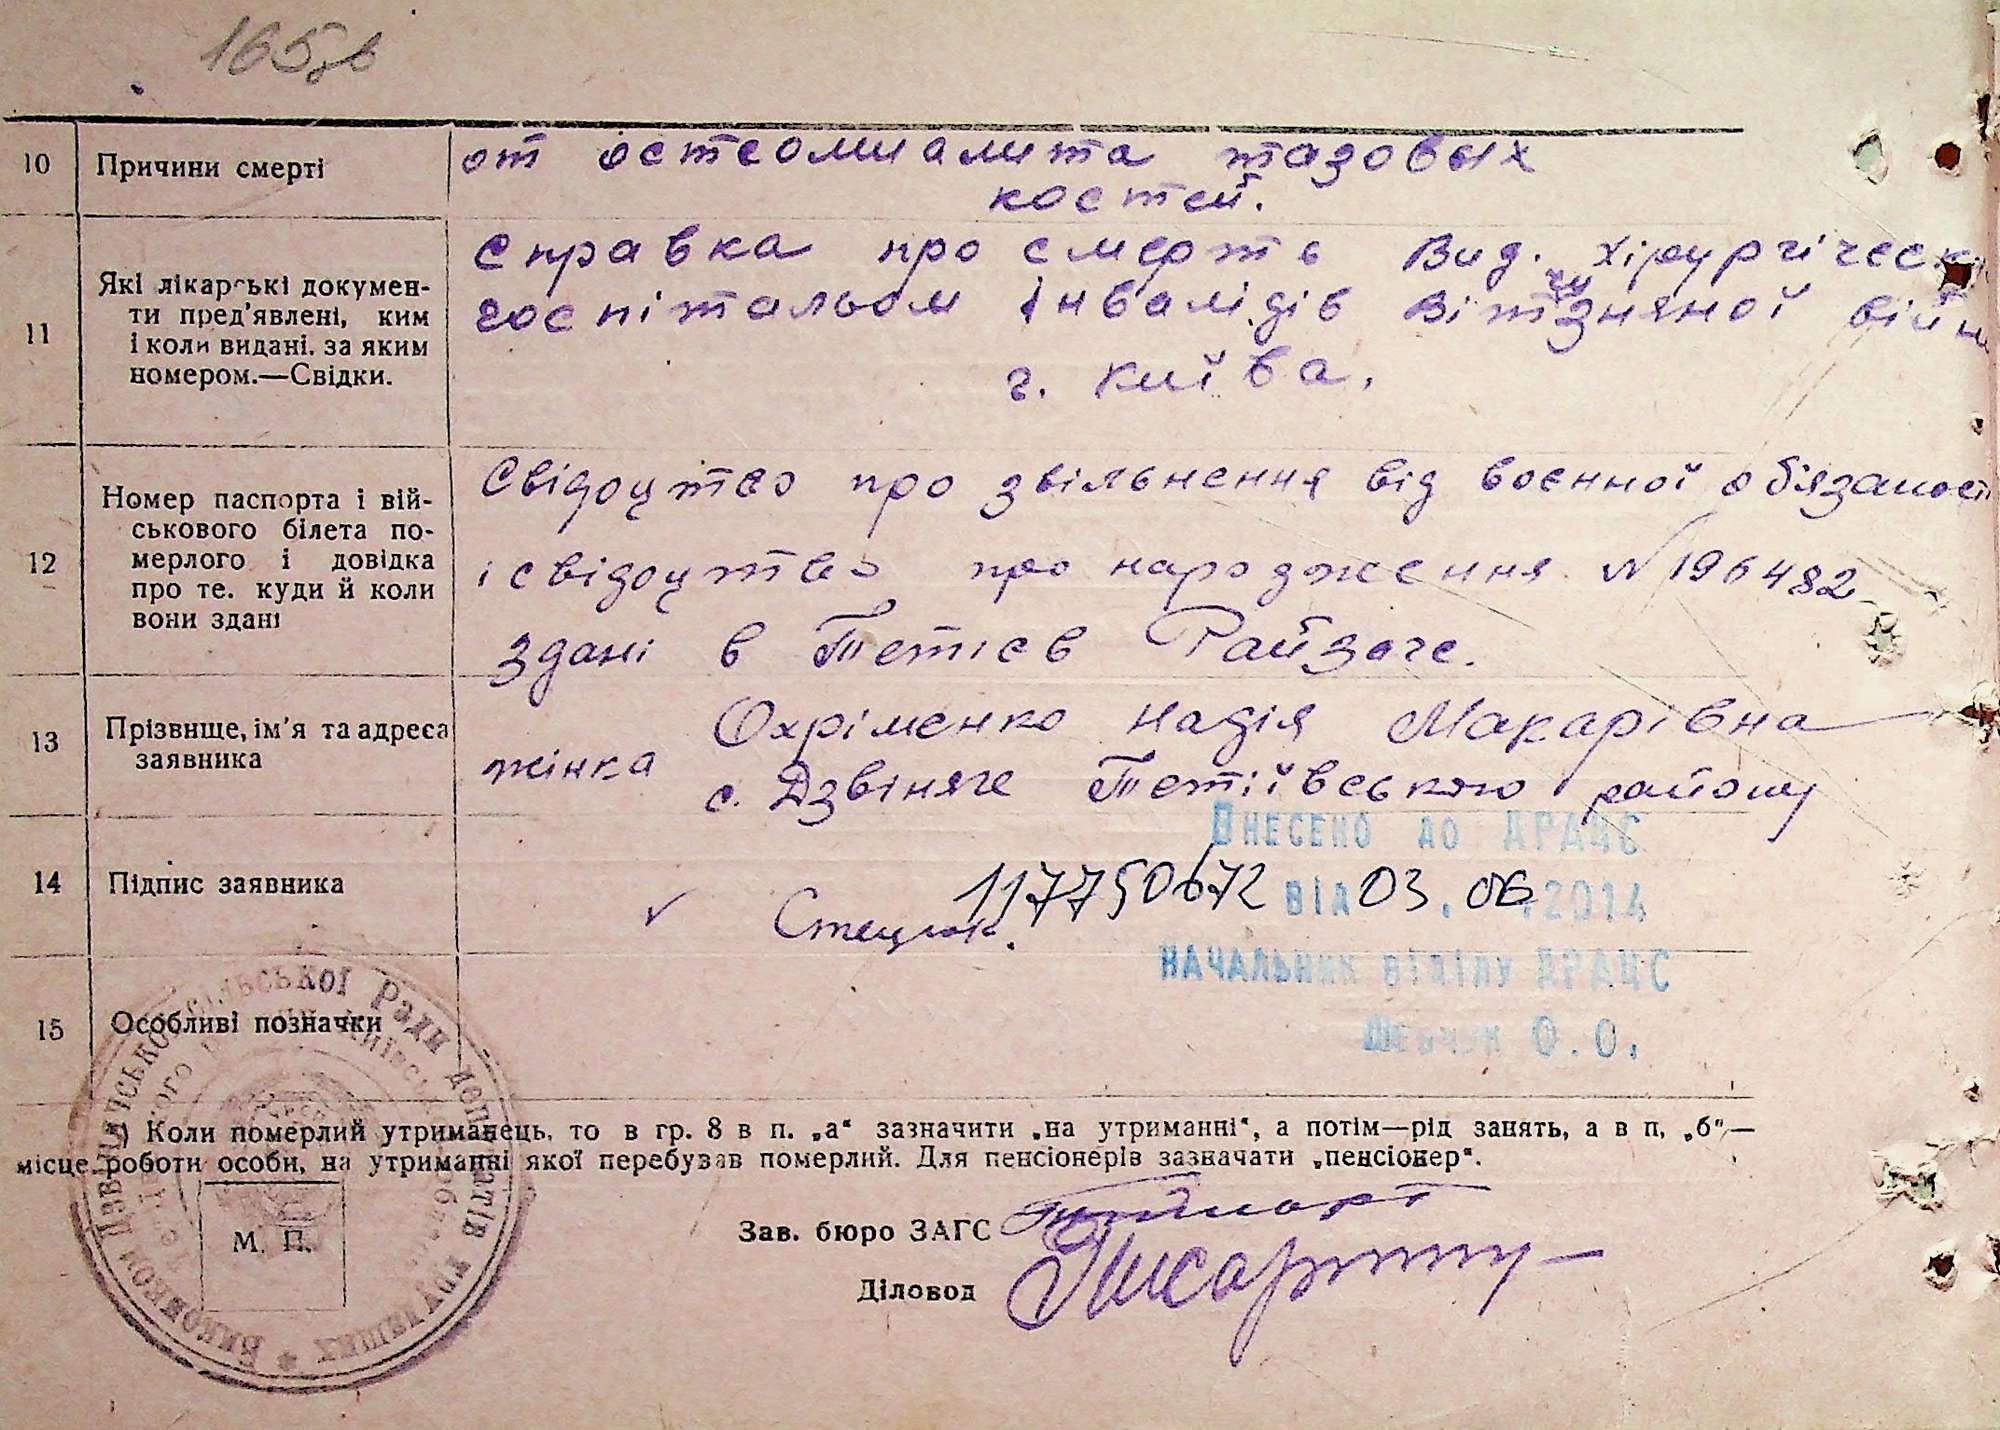 165зв
10 Причини смерті
от остеомиалита тазовых
костей.
11 Які лікарські докумен-
ти пред'явлені, ким
і коли видані. за яким
номером.—Свідки.
Справка про смерть Вид. Хірургіческ
госпітальом інвалідів Вітчизняной війни
г. Київа.
12 Номер паспорта і вій-
ськового білета по-
мерлого і довідка
про те. куди й коли
вони здані
Свідоцтво про звільнення від воєнної обязаност
і свідоцтво про народження N 196482
здані в Тетієв Райзагс.
13 Прізвище, ім'я та адреса
заявника
Охріменко Надія Макарівна
жінка с. Дзвіняче Тетіївського району
Внесено до ДРАЦС
14 Підпис заявника
117750672 від 03.06.2014
Стецюк.
Начальник відділу ДРАЦС
15 Особливі позначки
Шевчук О.О.
*) Коли померлий утриманець, то в гр. 8 в п. „а“ зазначити „на утриманні“, а потім—рід занять, а в п, „б“,—
місце роботи особи, на утриманні якої перебував померлий. Для пенсіонерів зазначати „пенсіонер“.
М. П.
Зав. бюро ЗАГС
Діловод
Виконком Дзвиняцької сільської Ради депутатів трудящих *
УРСР